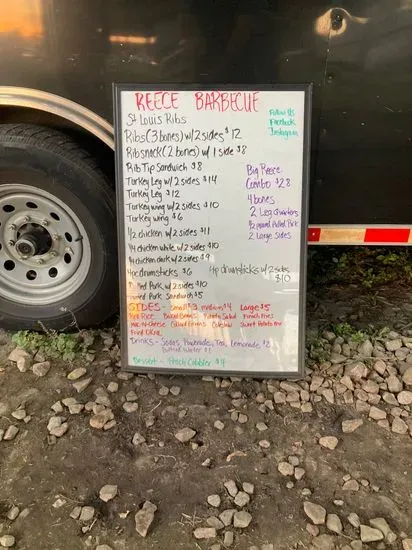 REECE BARBECUE
Follow Us
Facebook
Instagram
St Louis Ribs
Ribs (3 bones) w/ 2 sides $12
Ribsnack (2 bones) w/ 1 side $8
Rib Tip Sandwich $8
Turkey Leg w/ 2 sides $14
Turkey Leg $12
Turkey wing w/ 2 sides $10
Turkey wing $6
1/2 chicken w/ sides $11
1/4 chicken white w/ 2 sides $10
1/4 chicken dark w/ 2 sides $9
4pc drumsticks $6
4pc drumsticks w/ 2 sides
$10
Pork w/ 2 sides $10
Pork Sandwich $5
Big Reece
Combo $28
4 bones
2 Leg Quarters
1/2 pound Pulled Pork
2 Large Sides
SIDES - Small $3 medium $4 Large $5
Rice Baked Beans Potato Salad French Fries
Mac-n-Cheese Collard Greens Coleslaw Sweet Potato Fries
Fried Okra
Drinks - Sodas, Powerade, Tea, Lemonade $2
Bottled Water $1
Dessert - Peach Cobbler $4